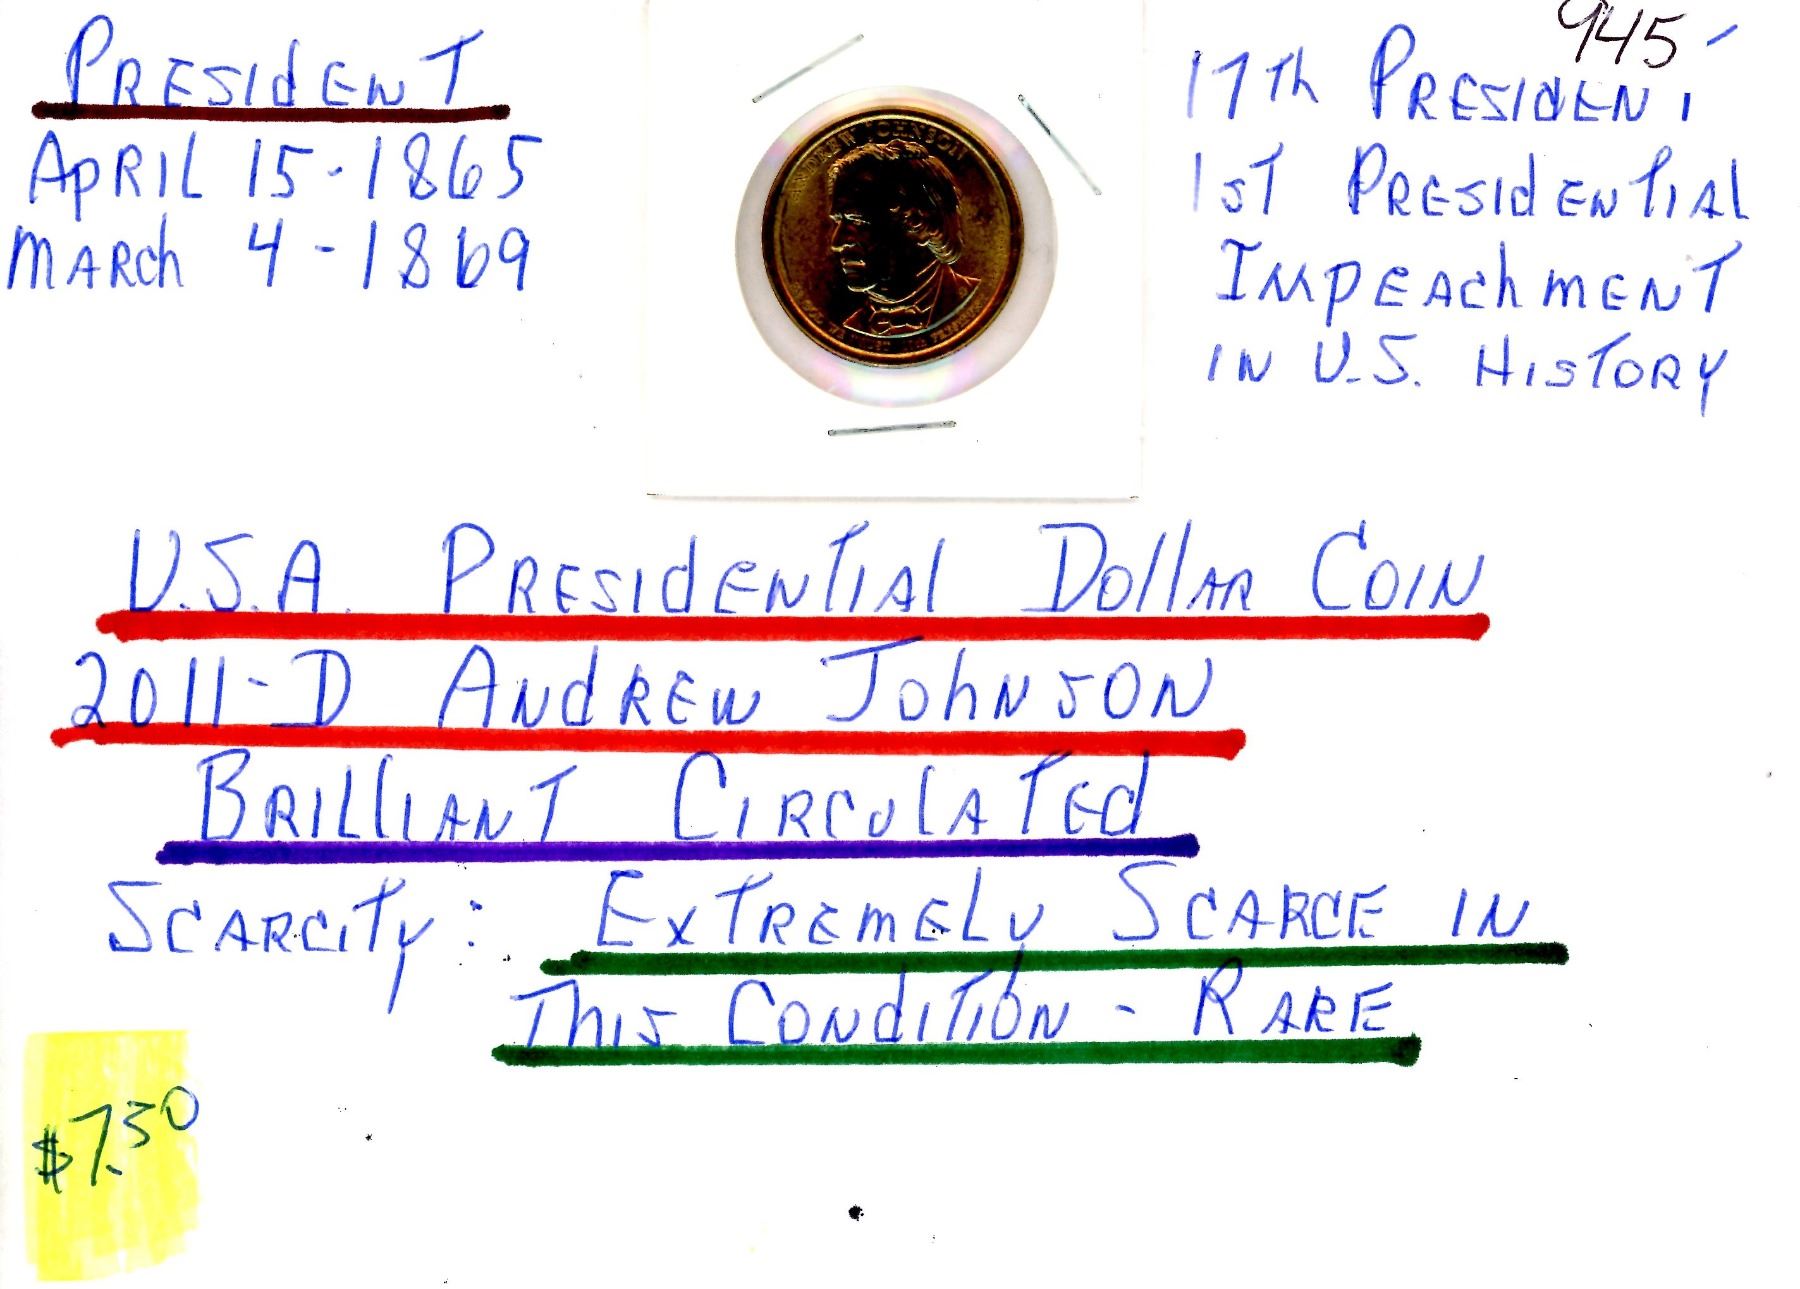 945
PRESIdENT
APRIL 15-1865
MARCh 4-1869
17Th PRESIdENT
1sT PRESIdENTIAL
IMPEAchMENT
IN U.S. HISTORY
ANDREW JOHNSON
U.S.A. PRESIdENTIAl DOllAR COIN
2011-D ANdREW JOhNSON
BRIllIANT CIRCULATEd
SCARCITy: EXTREMELy SCARCE IN
ThIS CONdITION - RARE
$7.50